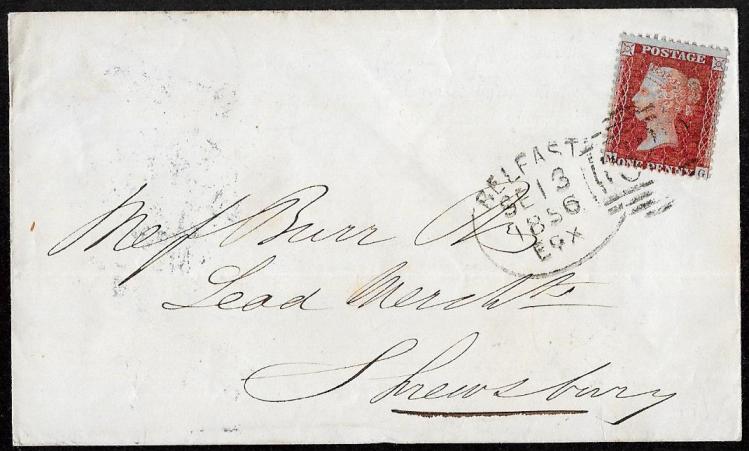 POSTAGE
ONE PENNY
M G
BELFAST
SE 13
1856
Messrs Burr
Lead Merchts
Shrewsbury